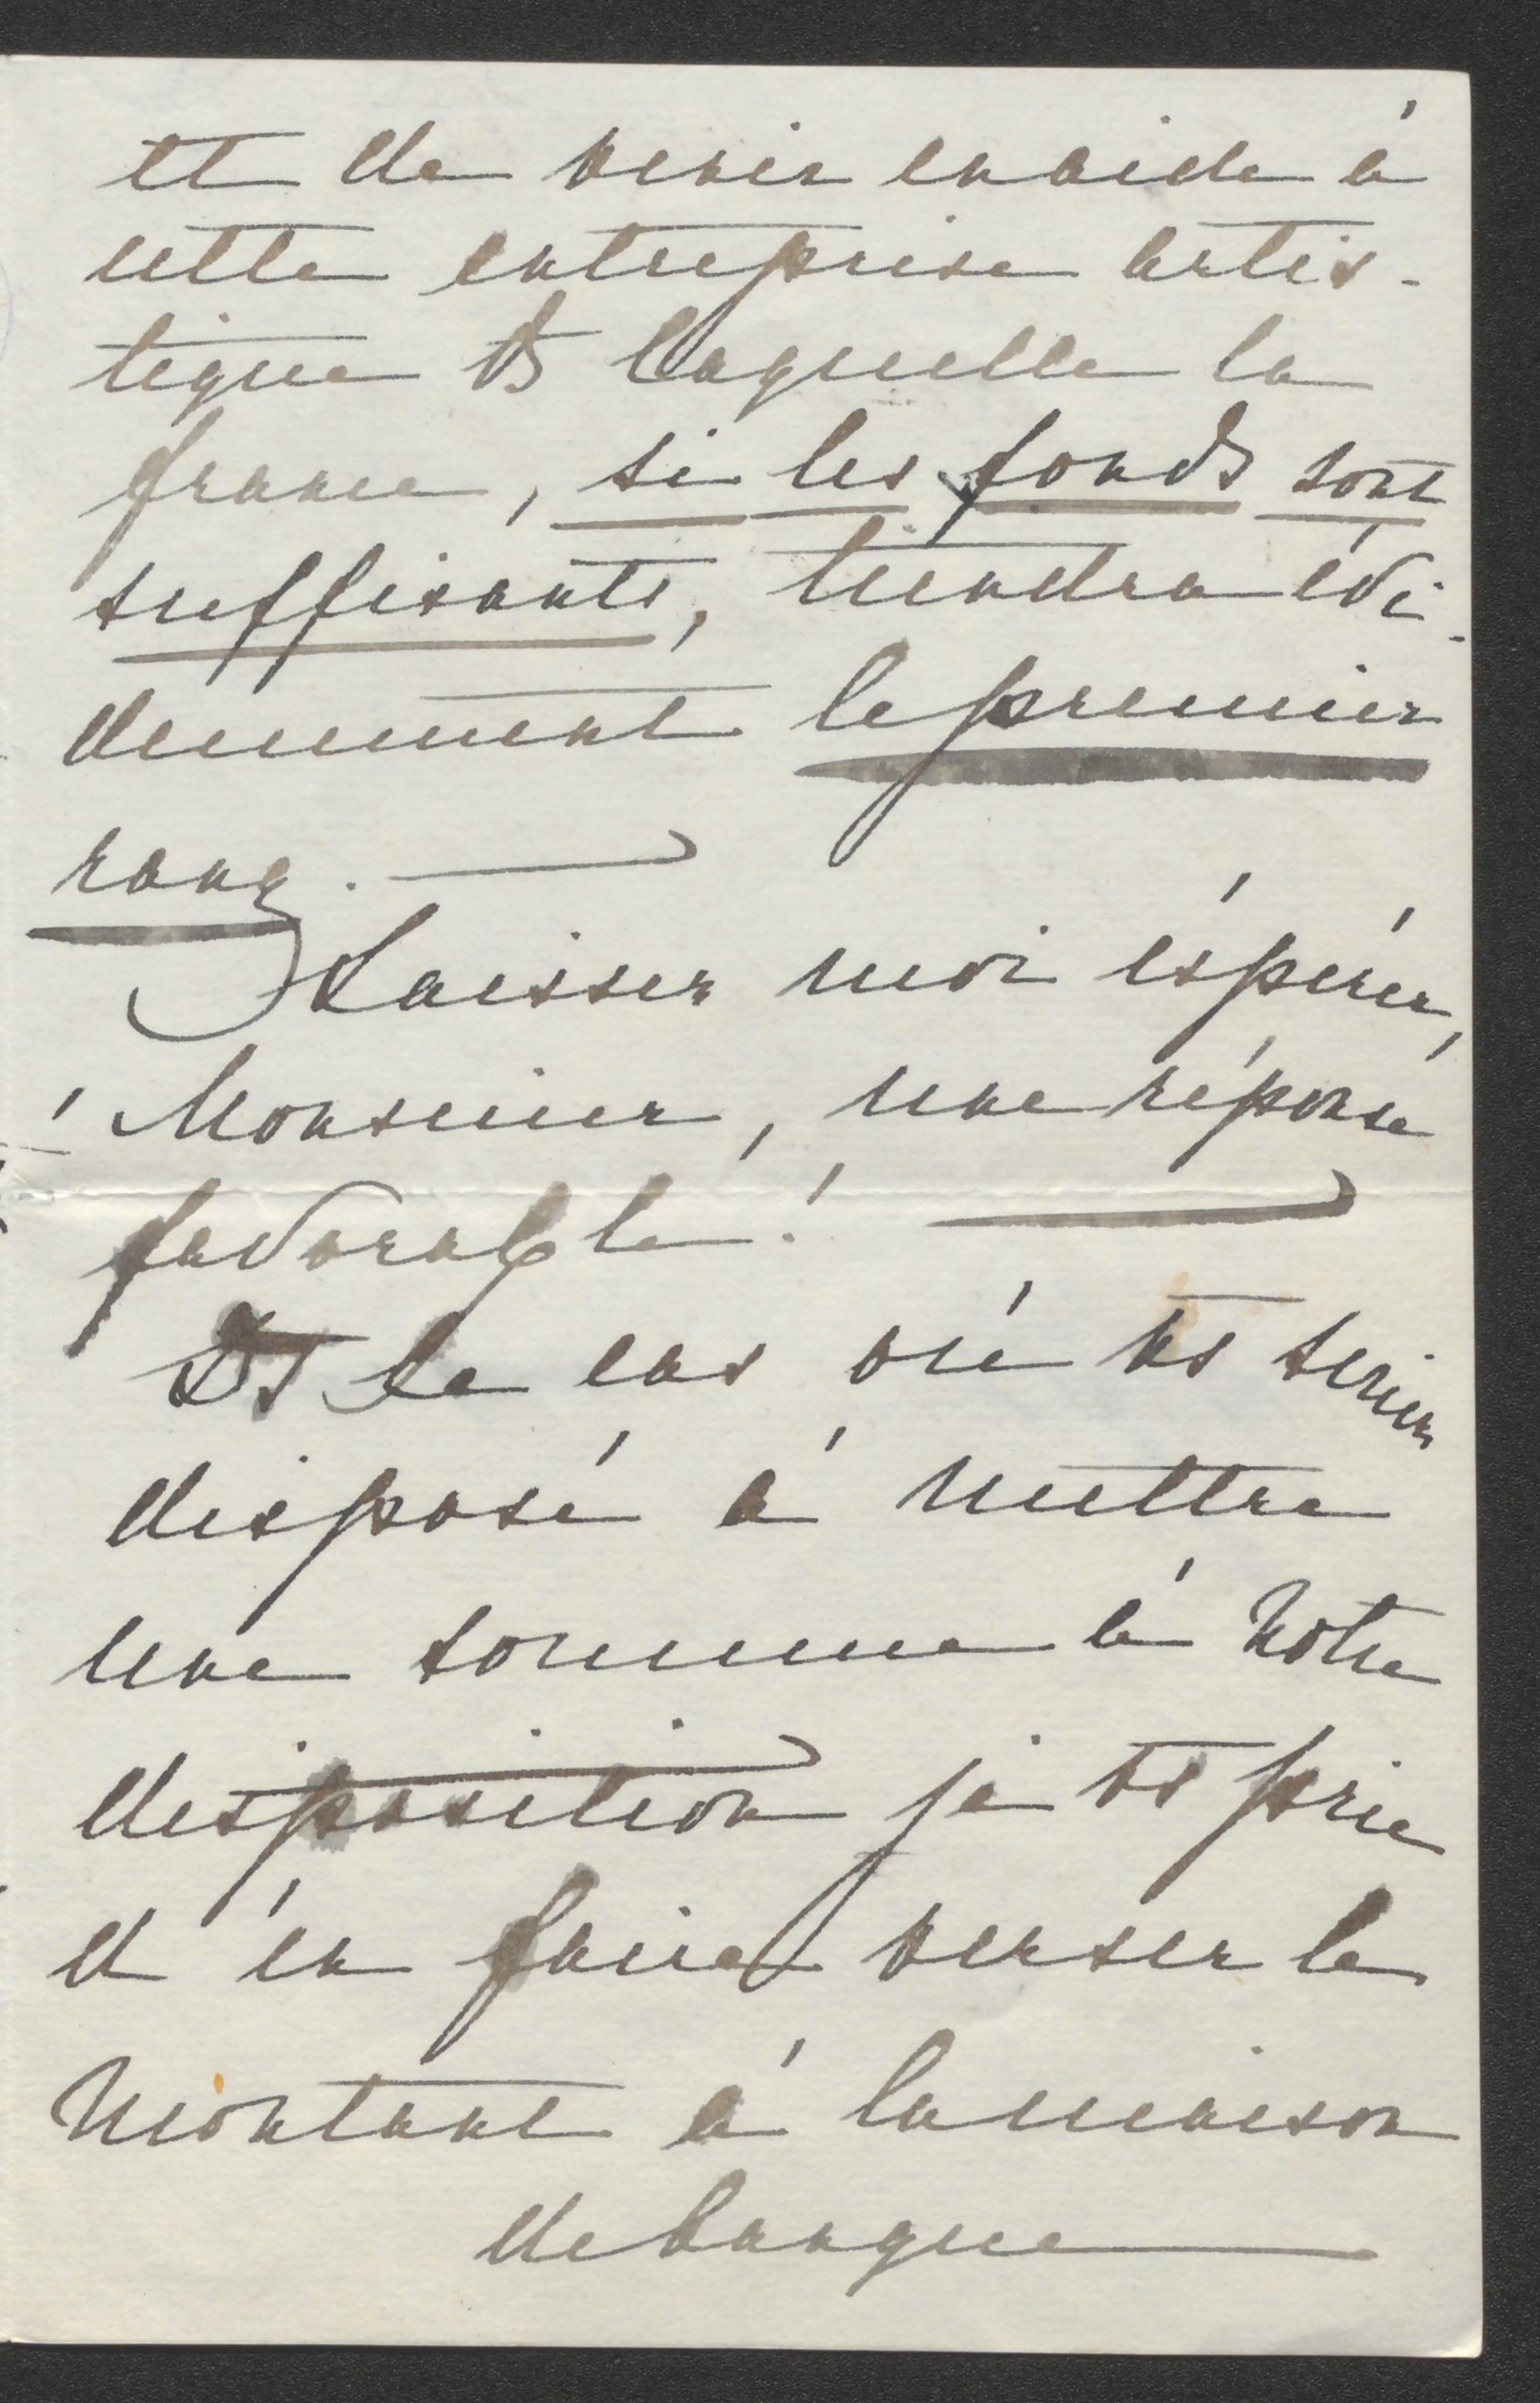 et de venir en aide à
cette entreprise artis-
tique ds laquelle la
france, si les fonds sont
suffisants, tiendra évi-
demment le premier
rang.
Laissez moi éspérér,
Monsieur, une réponse
favorable!
Ds le cas où vs seriez
disposé à mettre
une somme à notre
disposition je vs prie
d'en faire verser le
montant à la maison
de banque